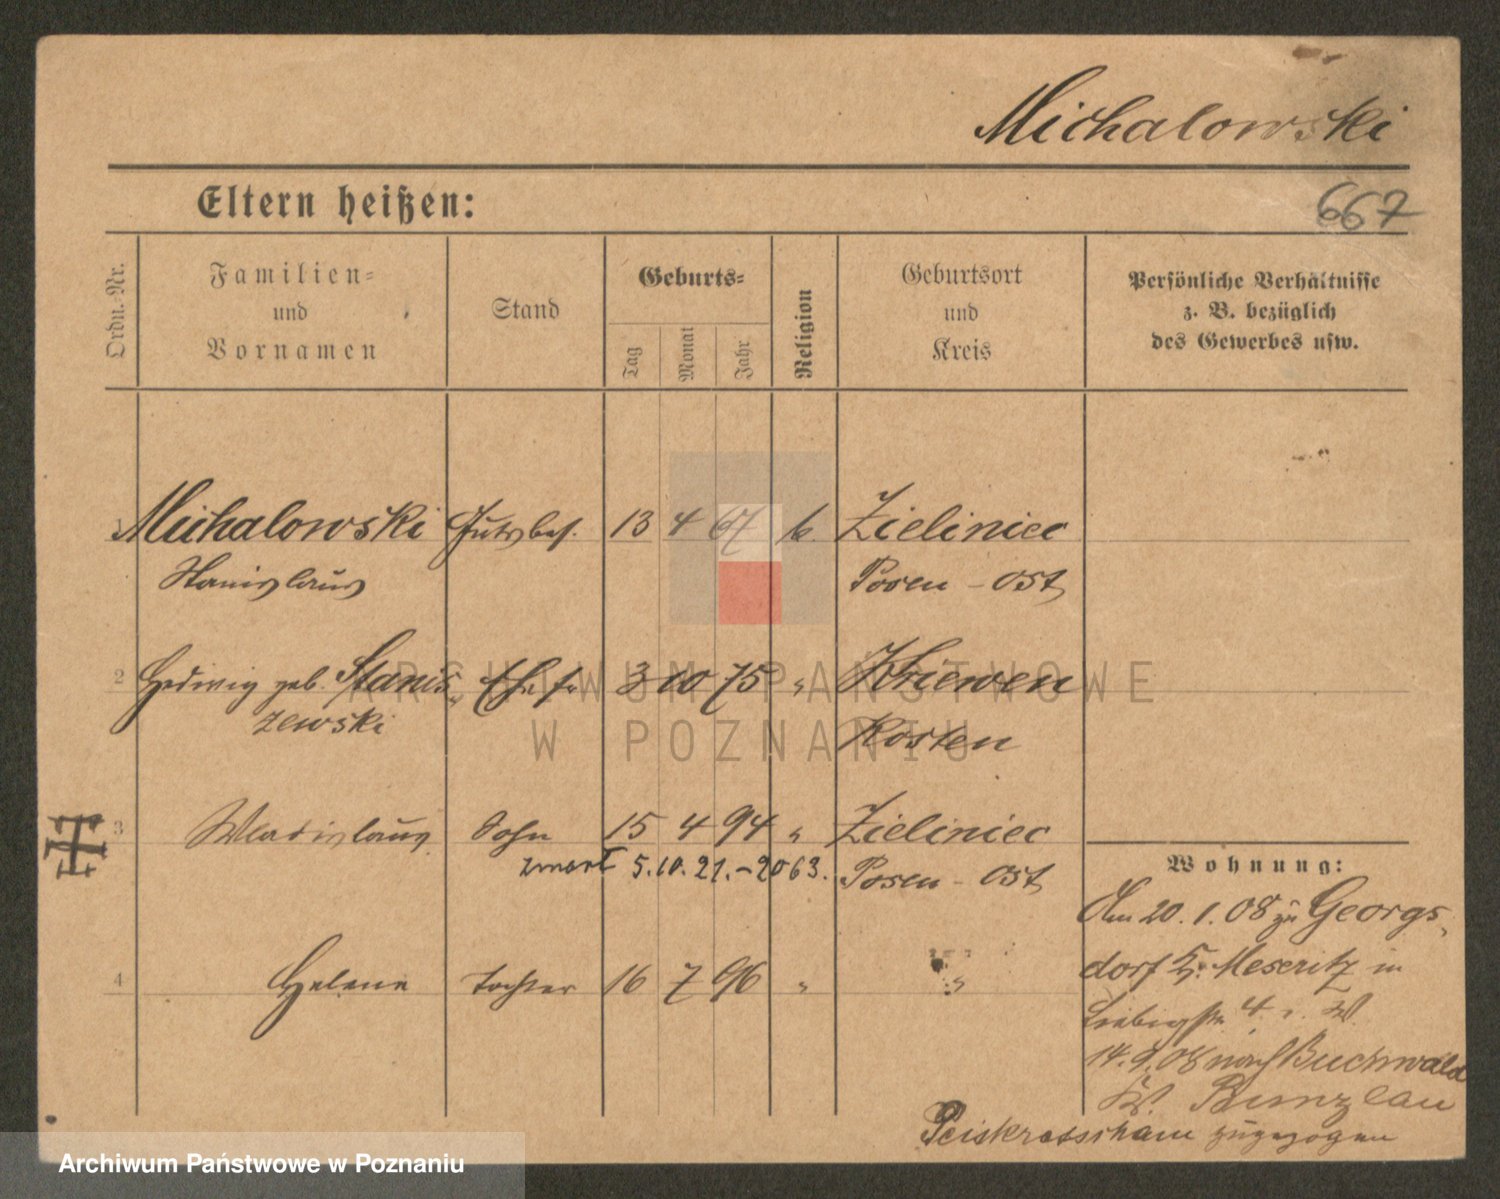 Michalowski
Eltern heißen:
667
Ordn.-Nr.
Familien-
und
Vornamen
Stand
Geburts-
Tag
Monat
Jahr
Religion
Geburtsort
und
Kreis
Persönliche Verhältnisse
z. B. bezüglich
des Gewerbes usw.
1 Michalowski Gutsbes. 13 4 67 k. Zieliniec
Stanislaus Posen - Ost
2 Hedwig geb. Stanis- Ehefr. 3 10 75 " Kriewen
zewski Kosten
3 Wladislaus Sohn 15 4 94 " Zieliniec
zmarł 5.10.21. - 2063. Posen - Ost
4 Helene Tochter 16 7 96 " "
Wohnung:
Am 20.1.08 zu Georgs-
dorf Kr. Meseritz in
Liebigstr. 4.
14.9.08 nach Buchwald
Kr. Bunzlau
Peiskretscham zugezogen
ARCHIWUM PAŃSTWOWE
W POZNANIU
Archiwum Państwowe w Poznaniu